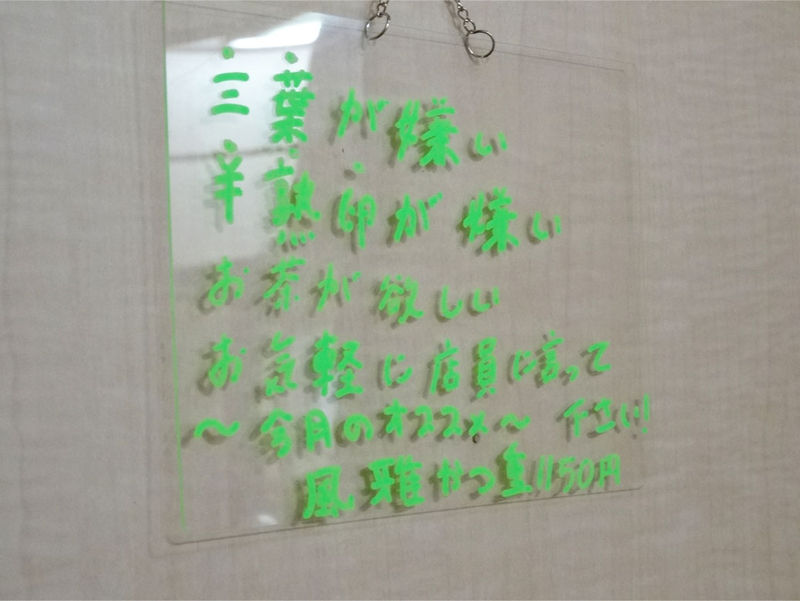 三葉が嫌い
半熟卵が嫌い
お茶が欲しい
お気軽に店員に言って
下さい!
〜今月のオススメ〜
風雅かつ重1150円